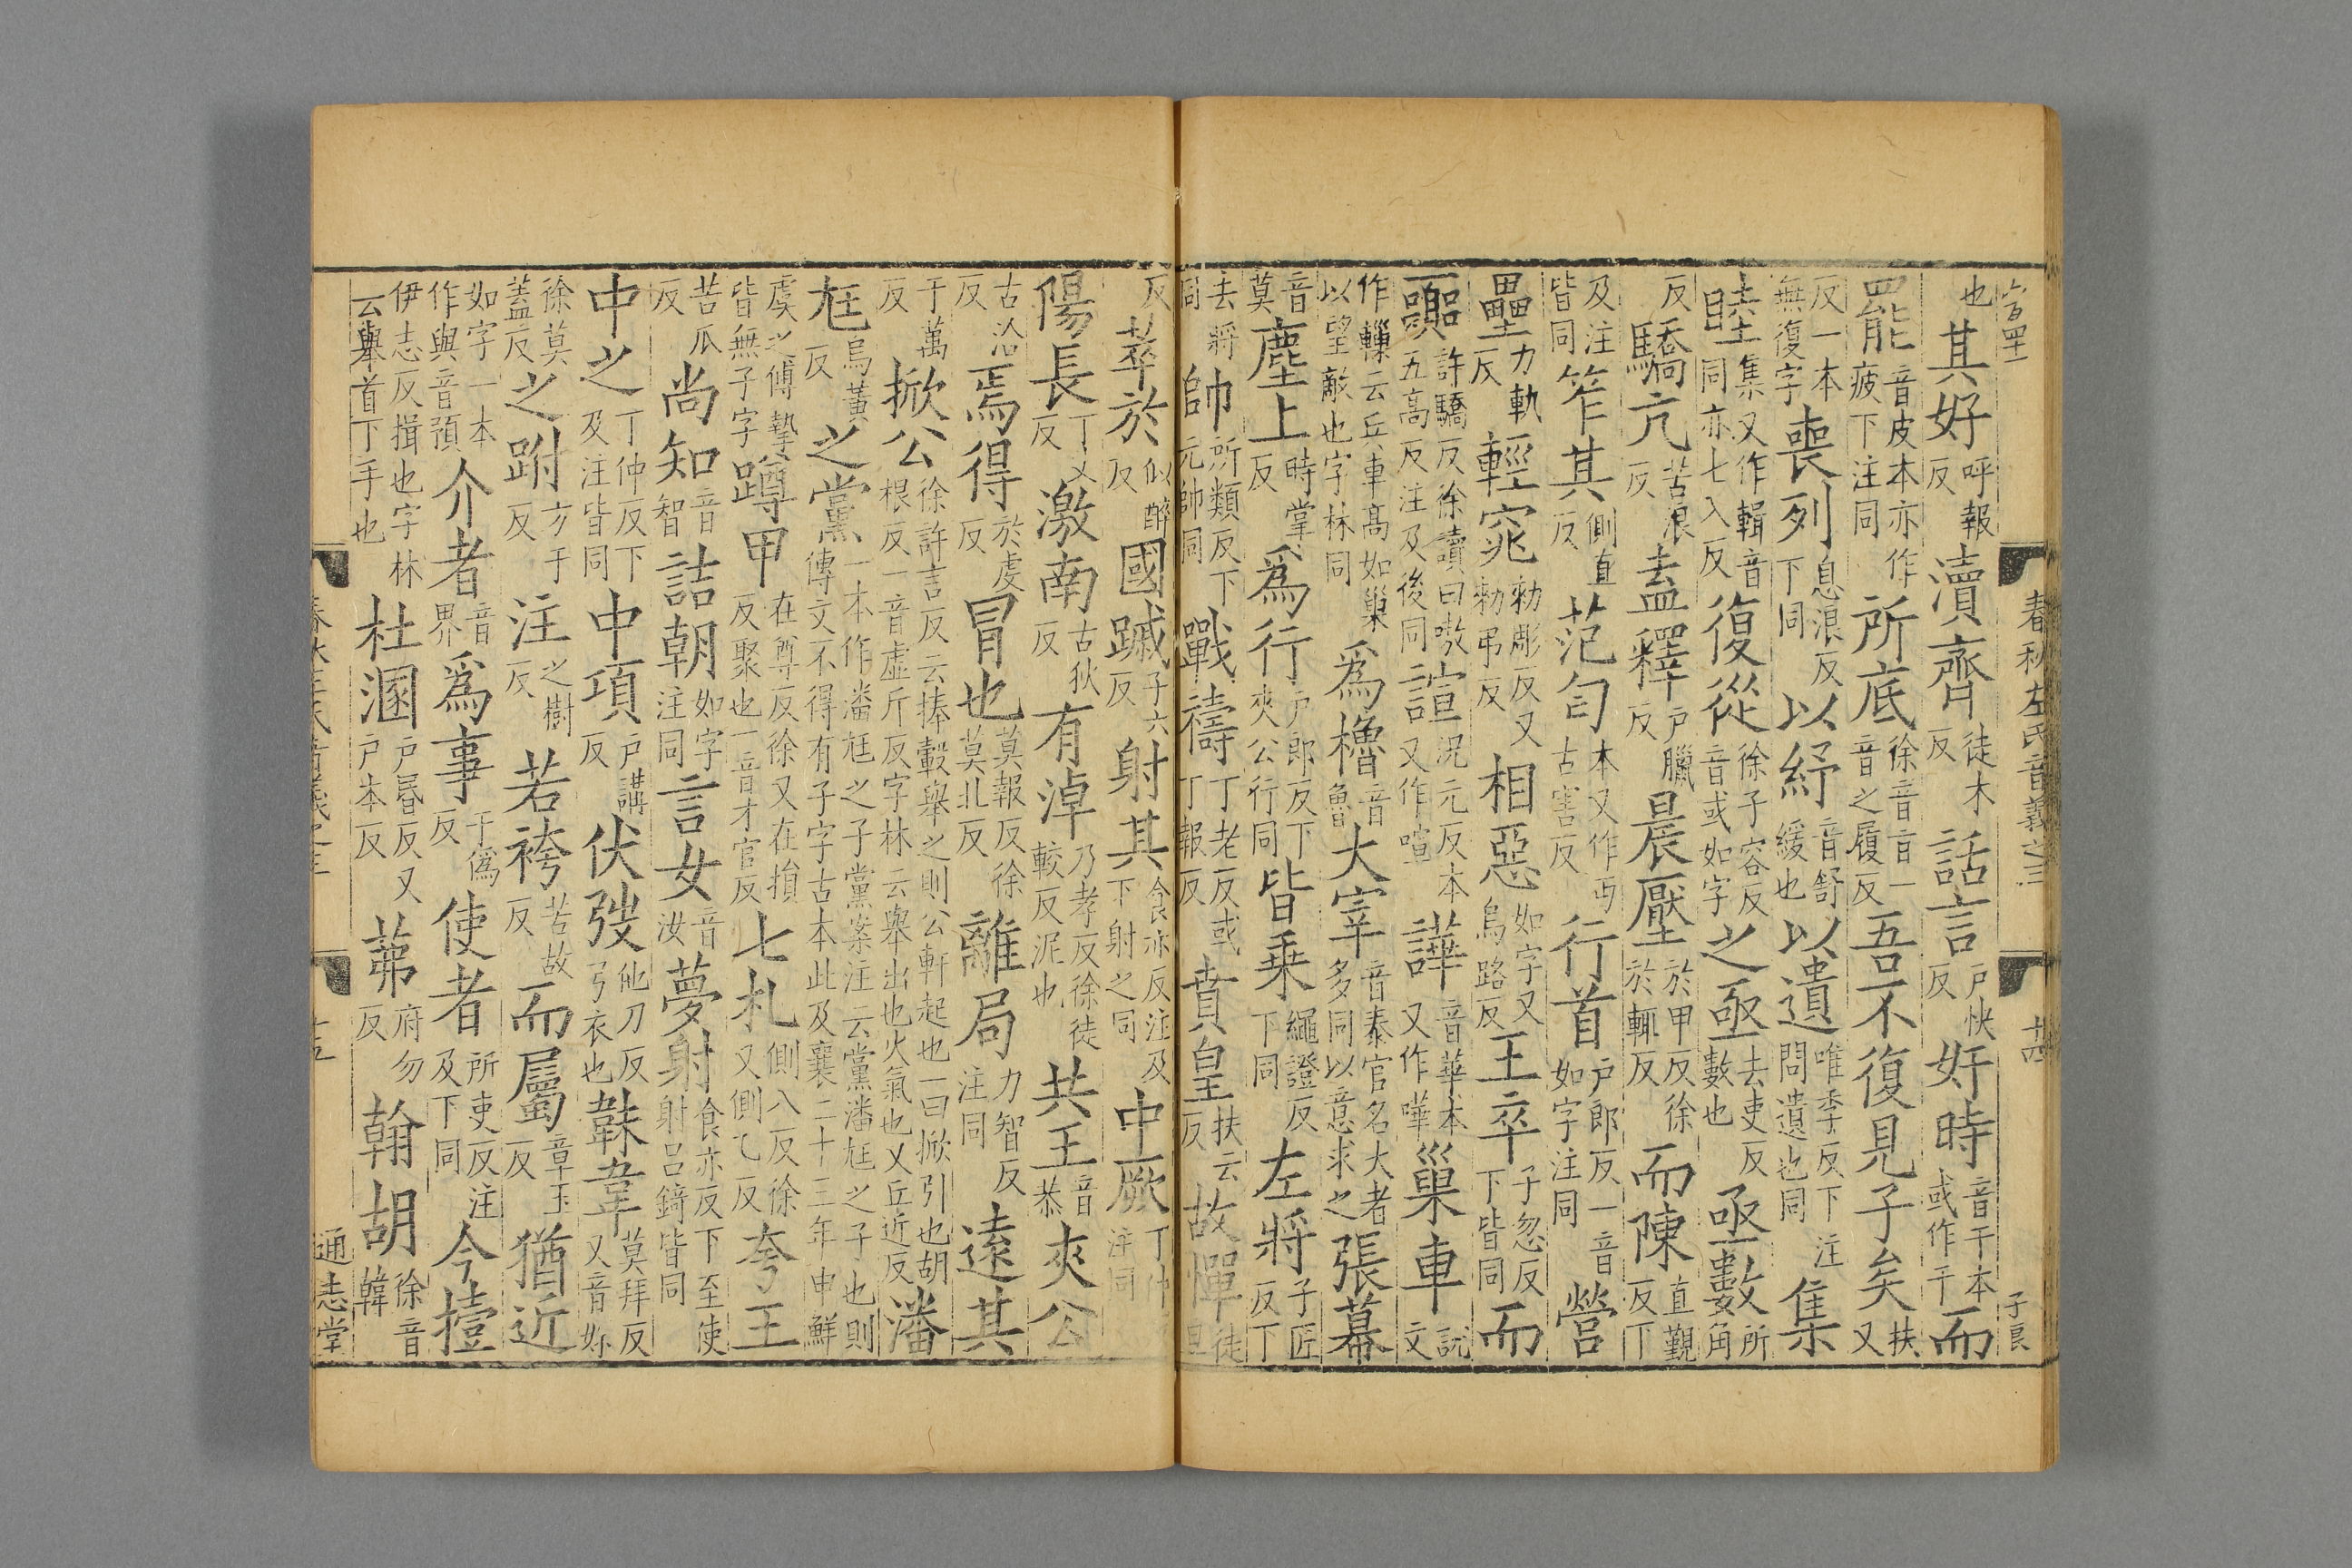 春秋左氏音義之三 十四 子良
也其好呼報反瀆齊徒木反話言户快反奸時音干本或作干而
罷音皮本亦作疲下注同所底徐音旨一音之履反吾不復見子矣扶又
反一本無復字喪列息浪反下同以紓音舒緩也以遺唯季反下注問遺也同集
睦集又作輯音同亦七入反復從徐子容反音或如字之亟去吏反數也亟數所角
反驕亢苦浪反盍釋户臘反晨壓於甲反徐於輒反而陳直覲反丁
及注皆同笮其側直反范匄本又作丐古害反行首户郎反一音如字注同營
壘力軌反輕窕勑彫反又勑弔反相惡如字又烏路反王卒子忽反下皆同而
嚻許驕反徐讀曰嗷五高反注及後同諠况元反本又作喧譁音華本又作嘩巢車說文
作轈云兵車高如巢以望敵也字林同爲櫓音魯大宰音泰官名大者多同以意求之張幕
音莫塵上時掌反爲行户郎反下夾公行同皆乗繩證反下同左將子匠反丁
去將同帥所類反下元帥同戰禱丁老反或丁報反賁皇扶云反故憚徒旦
反萃於似醉反國蹙子六反射其食亦反注及下射之同中厥丁仲注同
陽長丁丈反激南古狄反有淖乃孝反徐徒較反泥也共王音恭夾公
古洽反焉得於虔反冒也莫報反徐莫北反離局力智反注同遠其
于萬反掀公徐許言反云捧轂舉之則公軒起也一曰掀引也胡根反一音虛斤反字林云舉出也火氣也又丘近反潘
尩烏黃反之黨一本作潘尩之子黨案注云黨潘尩之子也則傳文不得有子字古本此及襄二十三年申鮮
虞之傅摯皆無子字蹲甲在尊反徐又在損反聚也一音才官反七札側八反徐又側乙反夸王
苦瓜反尚知音智詰朝如字注同言女音汝夢射食亦反下至使射呂錡皆同
中之丁仲反下及注皆同中項户講反伏弢他刀反弓衣也韎韋莫拜反又音妹
徐莫蓋反之跗方于反注之樹反若袴苦故反而屬章玉反猶近
如字一本作與音預介者音界爲事于僞反使者所吏反注及下同今撎
伊志反揖也字林云舉首下手也杜溷户昏反又户本反茀府勿反翰胡徐音韓
春秋左氏音義之三 十五 通志堂